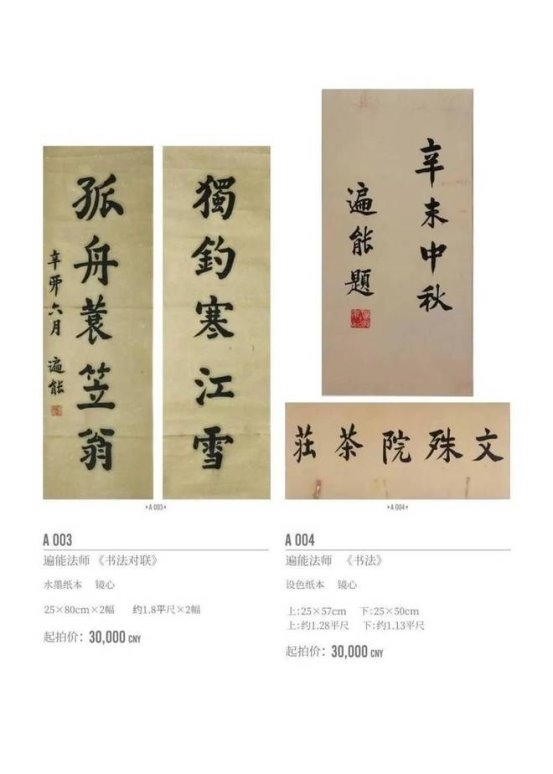 獨釣寒江雪
孤舟蓑笠翁
辛夘六月 遍能
辛未中秋
遍能題
文殊院茶莊
▸A 003◂
▸A 004◂
A 003
遍能法师 《书法对联》
水墨纸本 镜心
25×80cm×2幅 约1.8平尺×2幅
起拍价: 30,000 CNY
A 004
遍能法师 《书法》
设色纸本 镜心
上:25×57cm 下:25×50cm
上:约1.28平尺 下:约1.13平尺
起拍价: 30,000 CNY